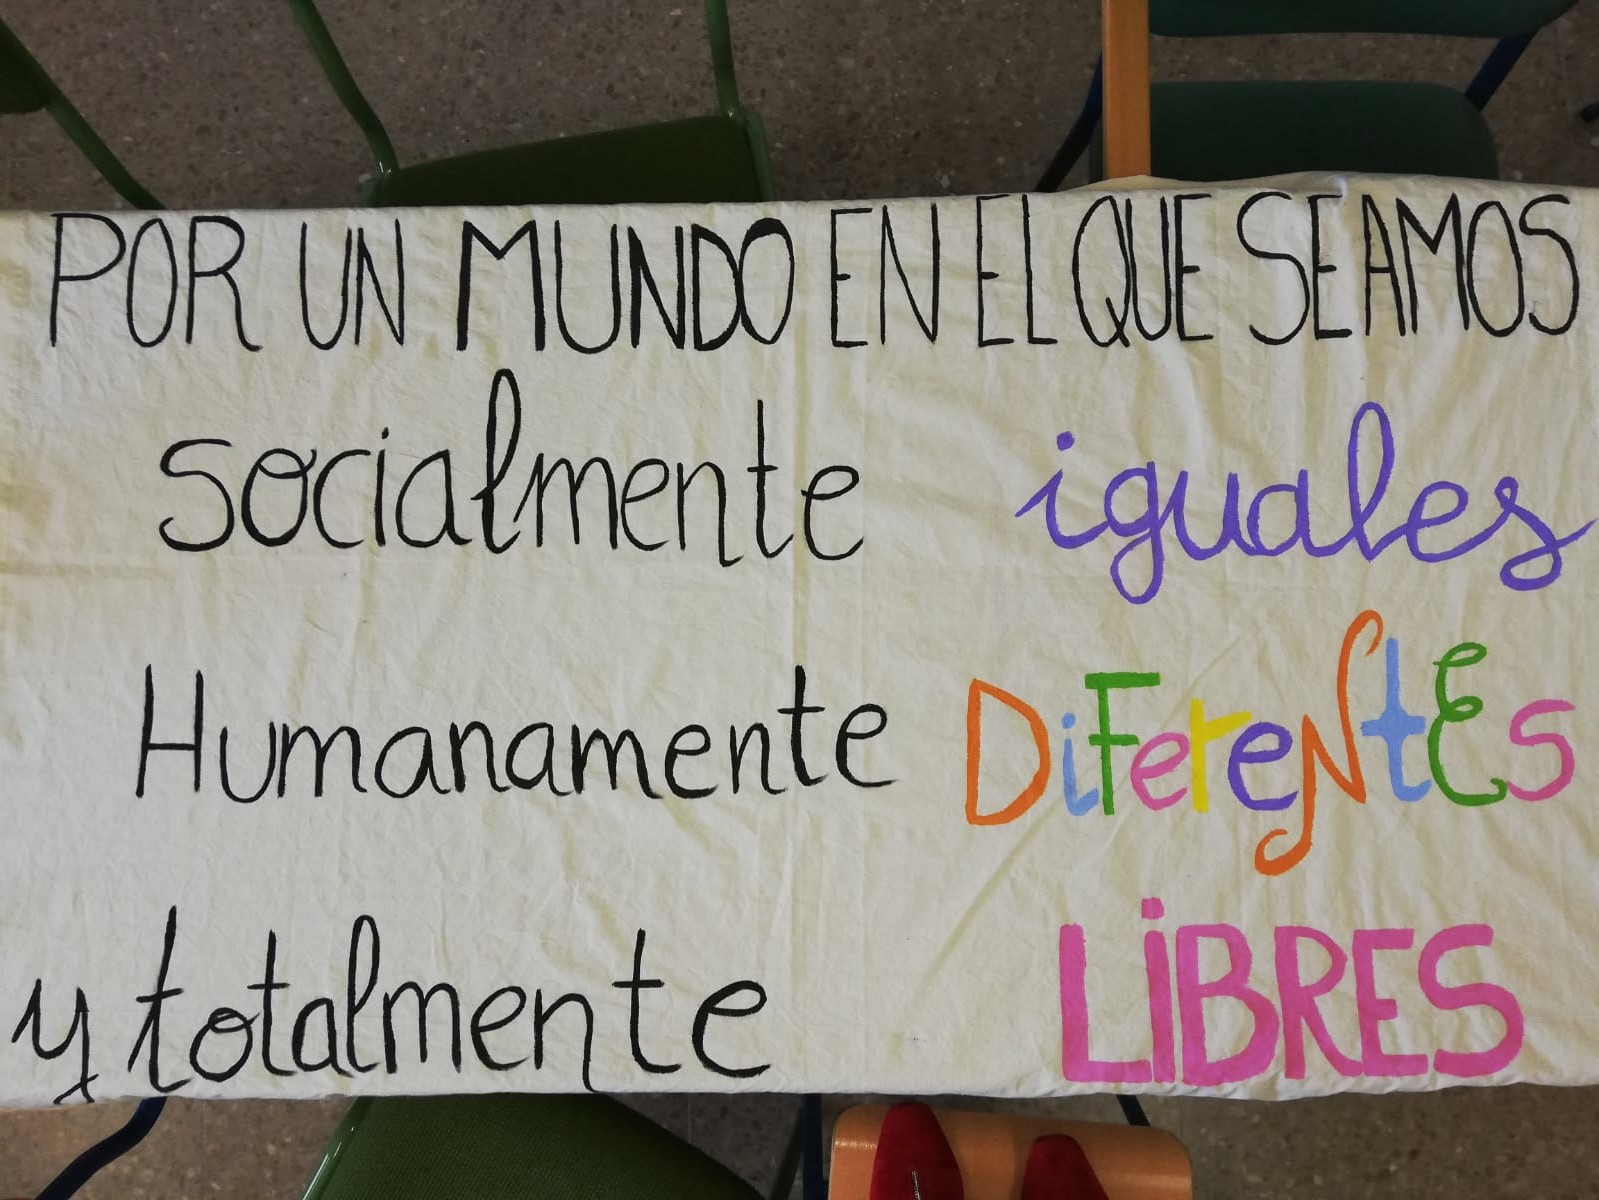 POR UN MUNDO EN EL QUE SEAMOS
socialmente iguales
Humanamente DiFereNtEs
y totalmente LiBRES